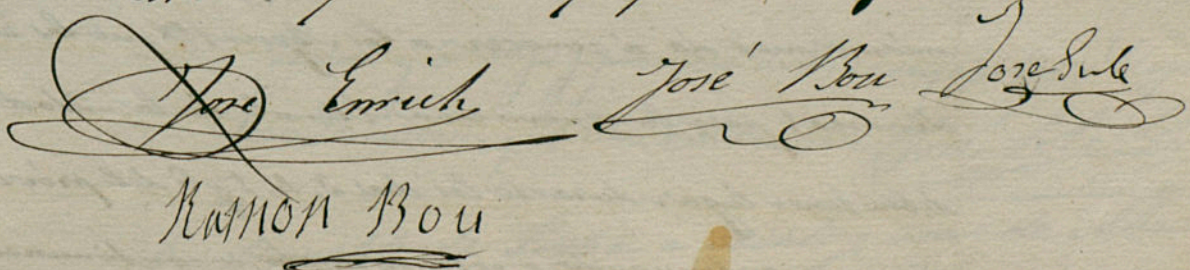 Jose Enrich José Bou Jose Gule
Ramon Bou